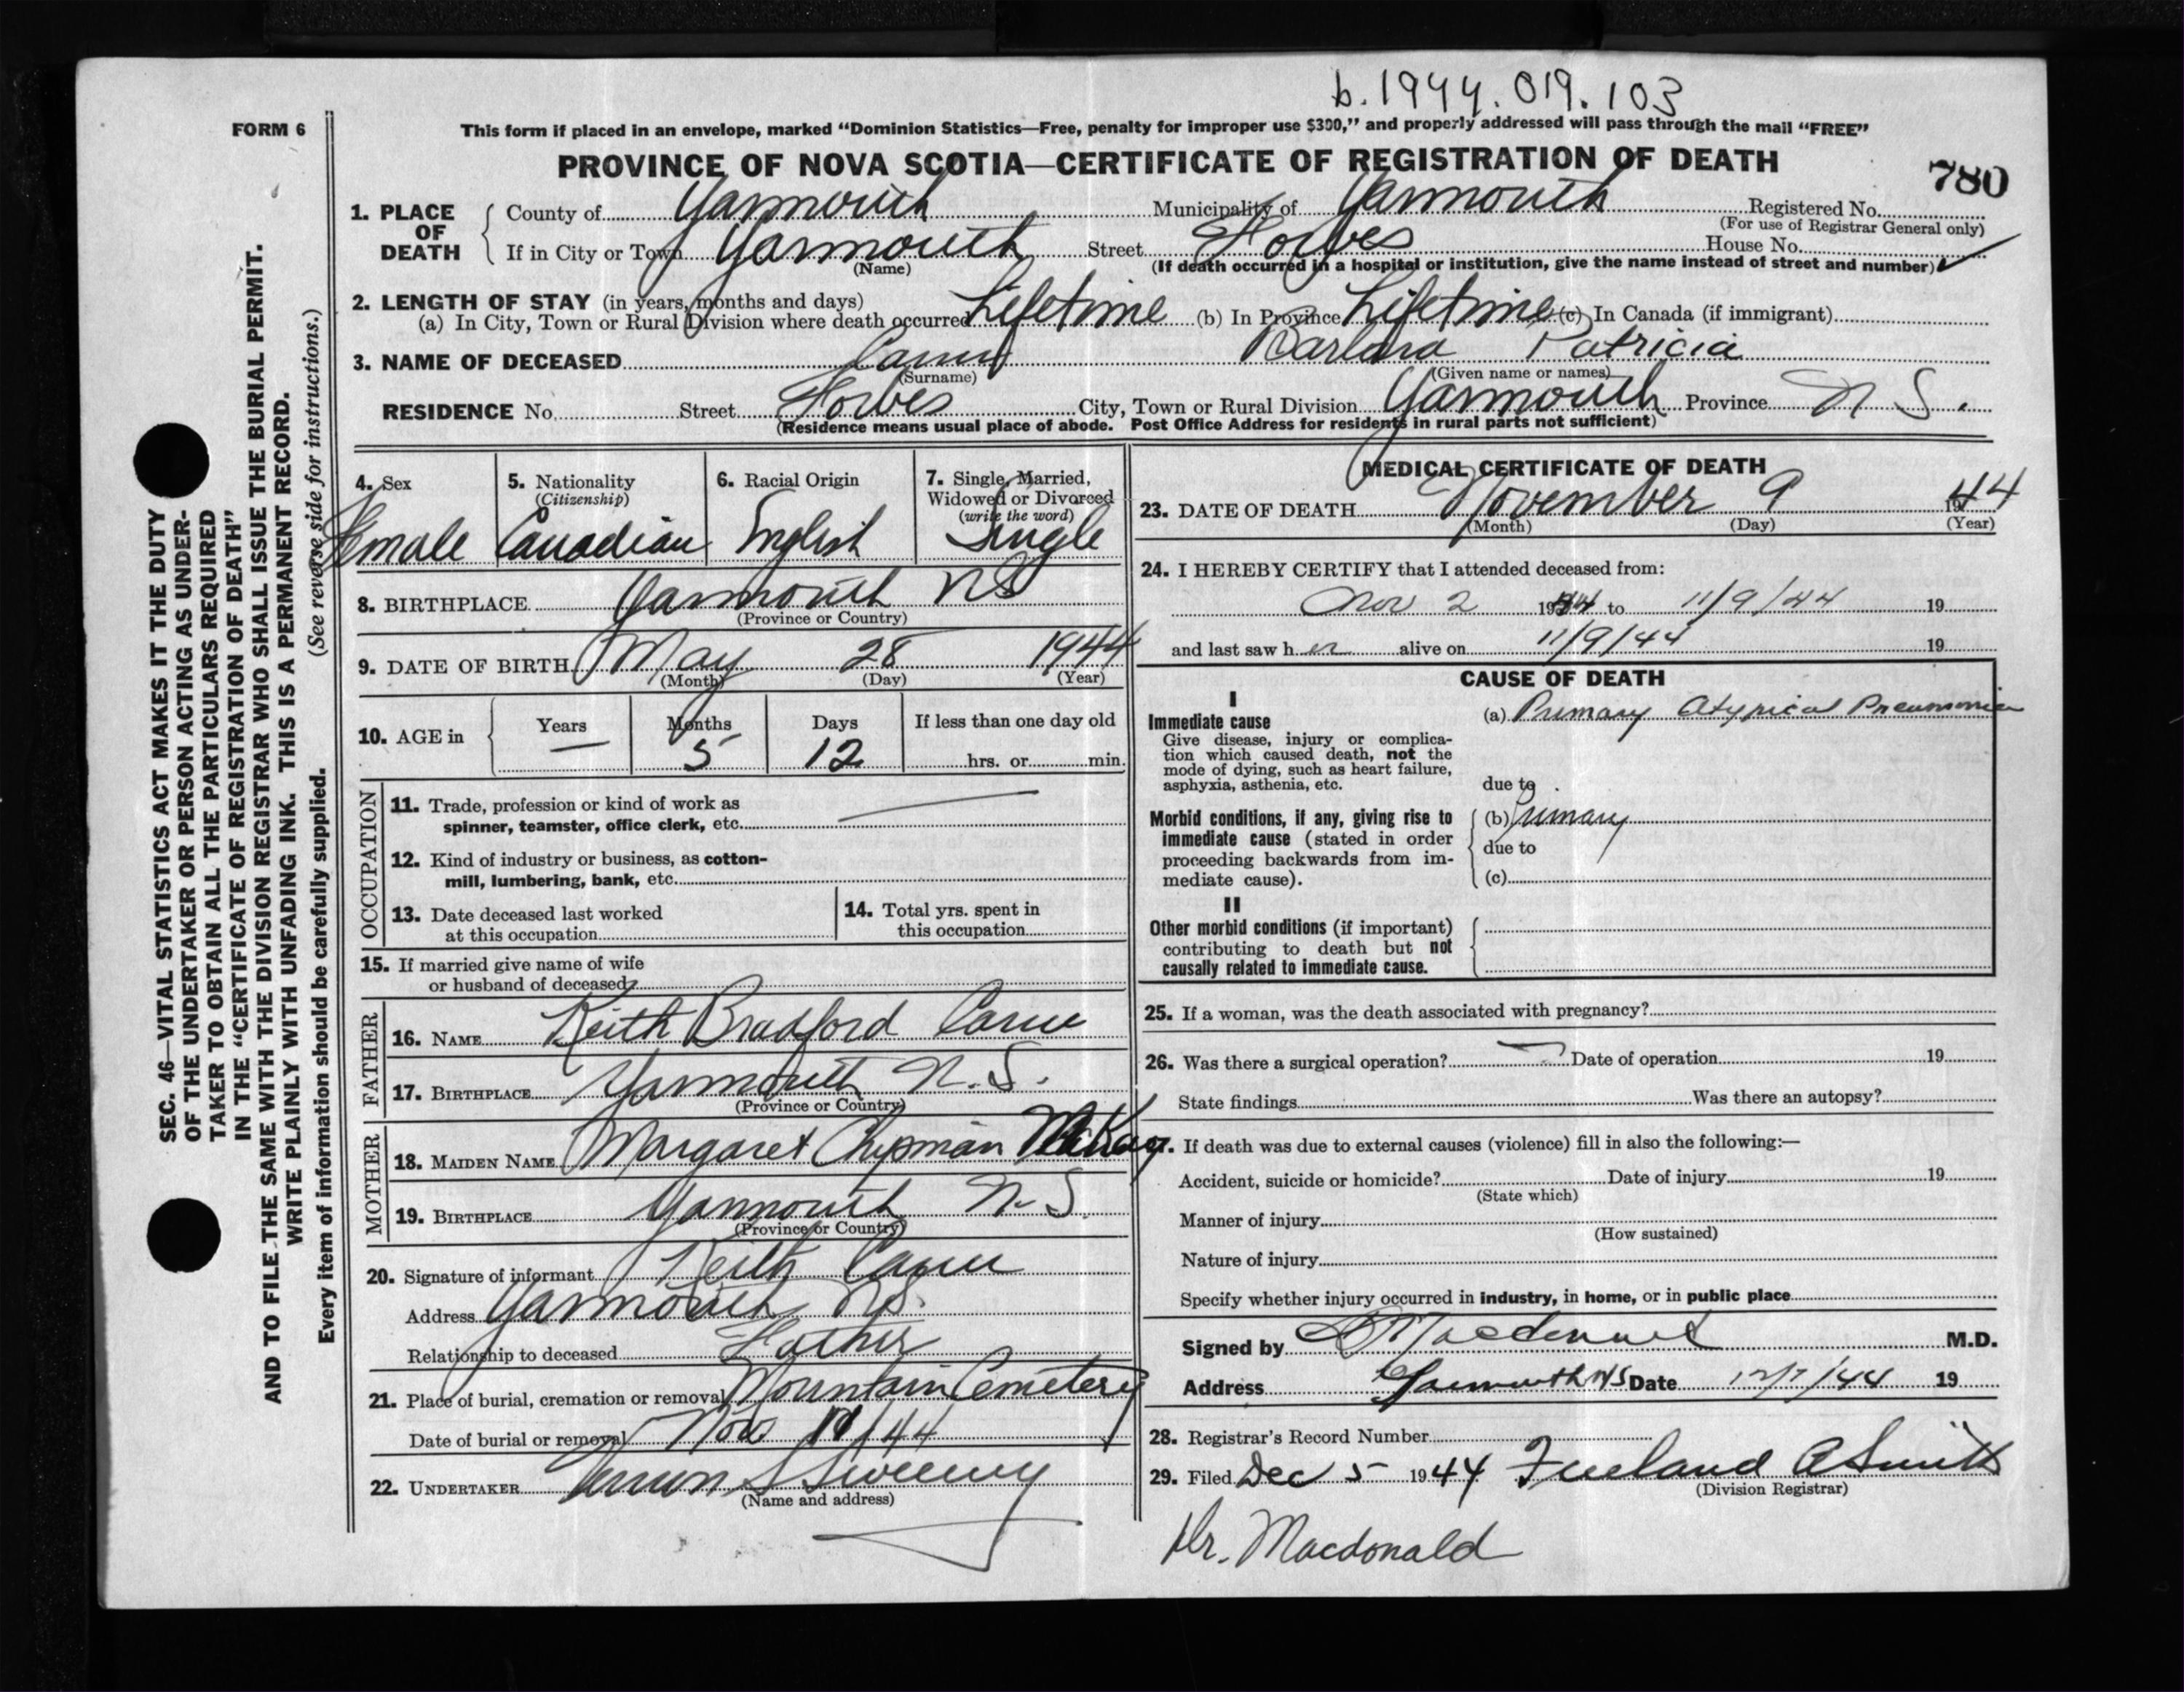 b. 1944. 019. 103
FORM 6
This form if placed in an envelope, marked “Dominion Statistics—Free, penalty for improper use $300,” and properly addressed will pass through the mail “FREE”
PROVINCE OF NOVA SCOTIA—CERTIFICATE OF REGISTRATION OF DEATH
780
1. PLACE OF DEATH County of Yarmouth Municipality of Yarmouth Registered No.
(For use of Registrar General only)
If in City or Town Yarmouth Street Forbes House No.
(Name) (If death occurred in a hospital or institution, give the name instead of street and number)
2. LENGTH OF STAY (in years, months and days)
(a) In City, Town or Rural Division where death occurred Lifetime (b) In Province Lifetime (c) In Canada (if immigrant)
3. NAME OF DECEASED Barbara Patricia
(Surname) (Given name or names)
RESIDENCE No. Street Forbes City, Town or Rural Division Yarmouth Province N S.
(Residence means usual place of abode. Post Office Address for residents in rural parts not sufficient)
4. Sex 5. Nationality (Citizenship) 6. Racial Origin 7. Single, Married, Widowed or Divorced (write the word)
Female Canadian English Single
8. BIRTHPLACE Yarmouth NS
(Province or Country)
9. DATE OF BIRTH May 28 1944
(Month) (Day) (Year)
10. AGE in Years Months Days If less than one day old
— 5 12 hrs. or min.
OCCUPATION
11. Trade, profession or kind of work as
spinner, teamster, office clerk, etc.
12. Kind of industry or business, as cotton-
mill, lumbering, bank, etc.
13. Date deceased last worked
at this occupation
14. Total yrs. spent in
this occupation
15. If married give name of wife
or husband of deceased
FATHER
16. NAME Keith Bradford
17. BIRTHPLACE Yarmouth N.S.
(Province or Country)
MOTHER
18. MAIDEN NAME Margaret Chipman McKay
19. BIRTHPLACE Yarmouth N.S.
(Province or Country)
20. Signature of informant Keith
Address Yarmouth NS.
Relationship to deceased Father
21. Place of burial, cremation or removal Mountain Cemetery
Date of burial or removal Nov /44
22. UNDERTAKER Vernon S Sweeny
(Name and address)
MEDICAL CERTIFICATE OF DEATH
23. DATE OF DEATH November 9 1944
(Month) (Day) (Year)
24. I HEREBY CERTIFY that I attended deceased from:
Nov 2 1944 to 11/9/44 19
and last saw her alive on 11/9/44 19
CAUSE OF DEATH
I
Immediate cause
Give disease, injury or complica-
tion which caused death, not the
mode of dying, such as heart failure,
asphyxia, asthenia, etc.
(a) Primary Atypical Pneumonia
due to
Morbid conditions, if any, giving rise to
immediate cause (stated in order
proceeding backwards from im-
mediate cause).
(b) Primary
due to
(c)
II
Other morbid conditions (if important)
contributing to death but not
causally related to immediate cause.
25. If a woman, was the death associated with pregnancy?
26. Was there a surgical operation? Date of operation 19
State findings Was there an autopsy?
27. If death was due to external causes (violence) fill in also the following:—
Accident, suicide or homicide? Date of injury 19
(State which)
Manner of injury
(How sustained)
Nature of injury
Specify whether injury occurred in industry, in home, or in public place
Signed by M.D.
Address Yarmouth NS Date 19
28. Registrar's Record Number
29. Filed Dec 5 1944 Freeland A Smith
(Division Registrar)
Dr. Macdonald
SEC. 46—VITAL STATISTICS ACT MAKES IT THE DUTY
OF THE UNDERTAKER OR PERSON ACTING AS UNDER-
TAKER TO OBTAIN ALL THE PARTICULARS REQUIRED
IN THE “CERTIFICATE OF REGISTRATION OF DEATH”
AND TO FILE THE SAME WITH THE DIVISION REGISTRAR WHO SHALL ISSUE THE BURIAL PERMIT.
WRITE PLAINLY WITH UNFADING INK. THIS IS A PERMANENT RECORD.
Every item of information should be carefully supplied. (See reverse side for instructions.)